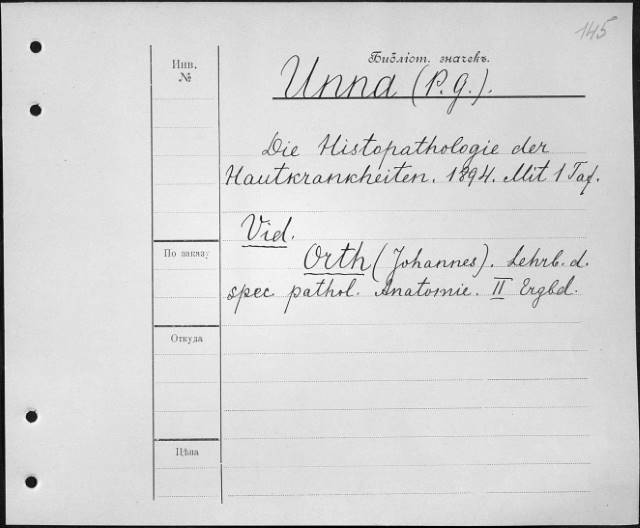 145
Библіот. значекъ.
Инв.
№
Unna (P. g.).
Die Histopathologie der
Hautkrankheiten. 1894. Mit 1 Taf.
Vid.
По заказу
Orth (Johannes). Lehrb. d.
spec. pathol. Anatomie. II Ergbd.
Откуда
Цѣна